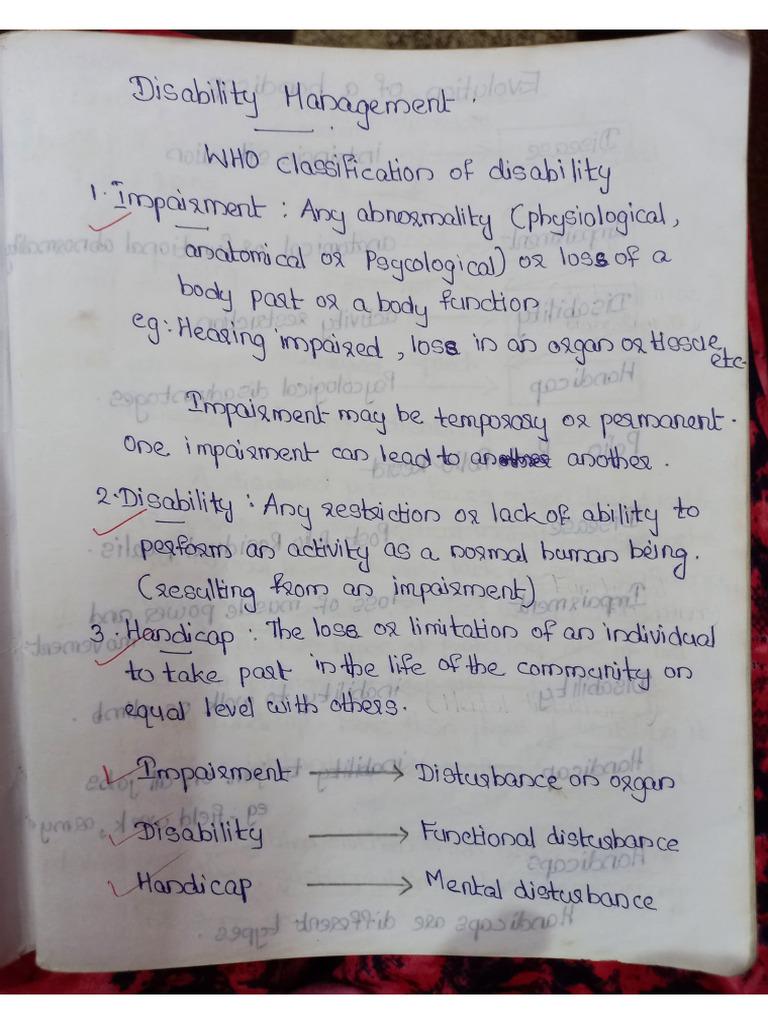 Disability Management.
WHO classification of disability
1. Impairment : Any abnormality (physiological,
anatomical or Psycological) or loss of a
body part or a body function
eg: Hearing impaired, loss in an organ or tissue
etc.
Impairment may be temporary or permanent.
One impairment can lead to another another.
2. Disability : Any restriction or lack of ability to
perform an activity as a normal human being.
(resulting from an impairment)
3. Handicap : The loss or limitation of an individual
to take part in the life of the community on
equal level with others.
Impairment → Disturbance on organ
Disability → Functional disturbance
Handicap → Mental disturbance